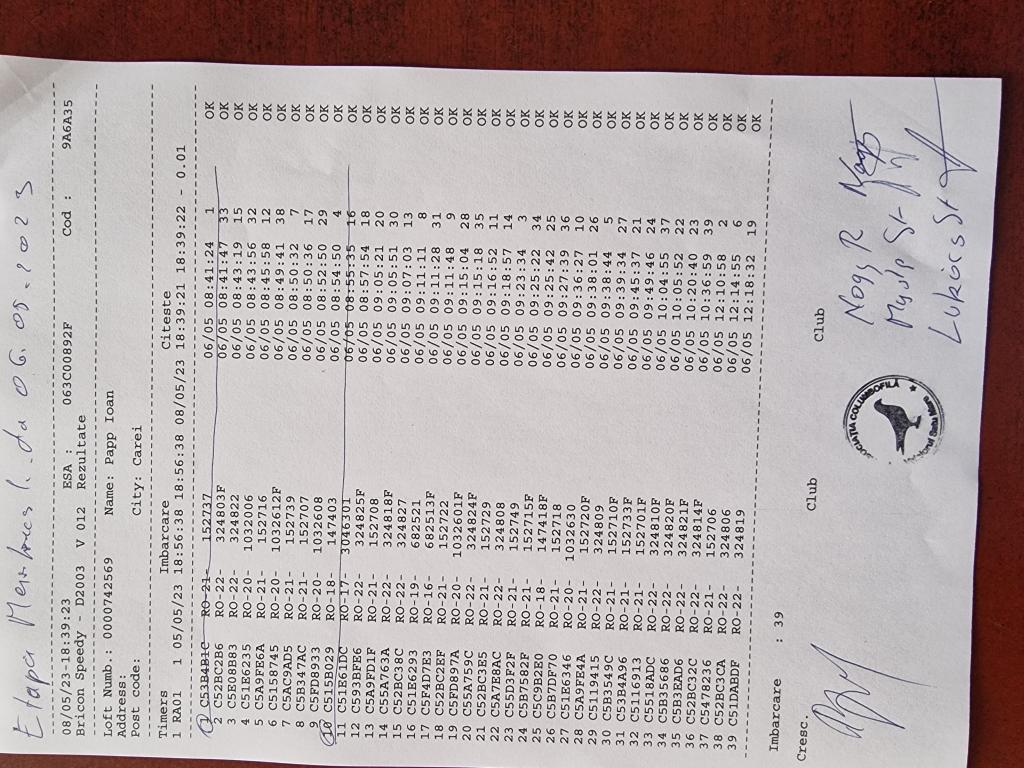 06.05.2023
08/05/23-18:39:23 ESA : 063C00892F Cod : 9A6A35
Bricon Speedy - D2003 V 012 Rezultate
Loft Numb.: 0000742569 Name: Papp Ioan
Address:
Post code: City: Carei
Timers Imbarcare Citeste
1 RA01 1 05/05/23 18:56:38 18:56:38 08/05/23 18:39:21 18:39:22 - 0.01
1 C53B4B1C RO-21- 152737 06/05 08:41:24 1 OK
2 C52BC2B6 RO-22- 324803F 06/05 08:41:47 33 OK
3 C5E08B83 RO-22- 324822 06/05 08:43:19 15 OK
4 C51E6235 RO-20- 1032006 06/05 08:43:56 32 OK
5 C5A9FE6A RO-21- 152716 06/05 08:45:58 12 OK
6 C5158745 RO-20- 1032612F 06/05 08:49:41 38 OK
7 C5AC9AD5 RO-21- 152739 06/05 08:50:32 7 OK
8 C5B347AC RO-21- 152707 06/05 08:50:36 17 OK
9 C5FD8933 RO-20- 1032608 06/05 08:52:50 29 OK
10 C515B029 RO-18- 147403 06/05 08:54:50 4 OK
11 C51E61DC RO-17- 3046301 06/05 08:55:35 16 OK
12 C593BFE6 RO-22- 324825F 06/05 08:57:54 18 OK
13 C5A9FD1F RO-21- 152708 06/05 09:05:21 20 OK
14 C55A763A RO-22- 324818F 06/05 09:05:51 30 OK
15 C52BC38C RO-22- 324827 06/05 09:07:03 13 OK
16 C51E6293 RO-19- 682521 06/05 09:11:11 8 OK
17 C5F4D7E3 RO-16- 682513F 06/05 09:11:28 31 OK
18 C52BC2EF RO-21- 152722 06/05 09:11:48 9 OK
19 C5FD897A RO-20- 1032601F 06/05 09:15:04 28 OK
20 C55A759C RO-22- 324824F 06/05 09:15:18 35 OK
21 C52BC3E5 RO-21- 152729 06/05 09:16:52 11 OK
22 C5A7E8AC RO-22- 324808 06/05 09:18:57 14 OK
23 C55D1F2F RO-21- 152749 06/05 09:23:34 3 OK
24 C5B7582F RO-21- 152715F 06/05 09:25:22 34 OK
25 C5C9B2E0 RO-18- 147418F 06/05 09:25:42 25 OK
26 C5B7DF70 RO-21- 152718 06/05 09:27:39 36 OK
27 C51E6346 RO-20- 1032630 06/05 09:36:27 10 OK
28 C5A9FE4A RO-21- 152720F 06/05 09:38:01 26 OK
29 C5119415 RO-22- 324809 06/05 09:38:44 5 OK
30 C5B3549C RO-21- 152710F 06/05 09:39:34 27 OK
31 C53B4A96 RO-21- 152733F 06/05 09:45:37 21 OK
32 C5116913 RO-21- 152701F 06/05 09:49:46 24 OK
33 C5518ADC RO-22- 324810F 06/05 10:04:55 37 OK
34 C5B35686 RO-22- 324820F 06/05 10:05:52 22 OK
35 C5B3EAD6 RO-22- 324821F 06/05 10:20:40 23 OK
36 C52BC32C RO-22- 324814F 06/05 10:36:59 39 OK
37 C5478236 RO-21- 152706 06/05 12:10:58 2 OK
38 C52BC3CA RO-22- 324806 06/05 12:14:55 6 OK
39 C51DABDF RO-22- 324819 06/05 12:18:32 19 OK
Imbarcare : 39
Cresc. Club Club
COLUMBOFILĂ